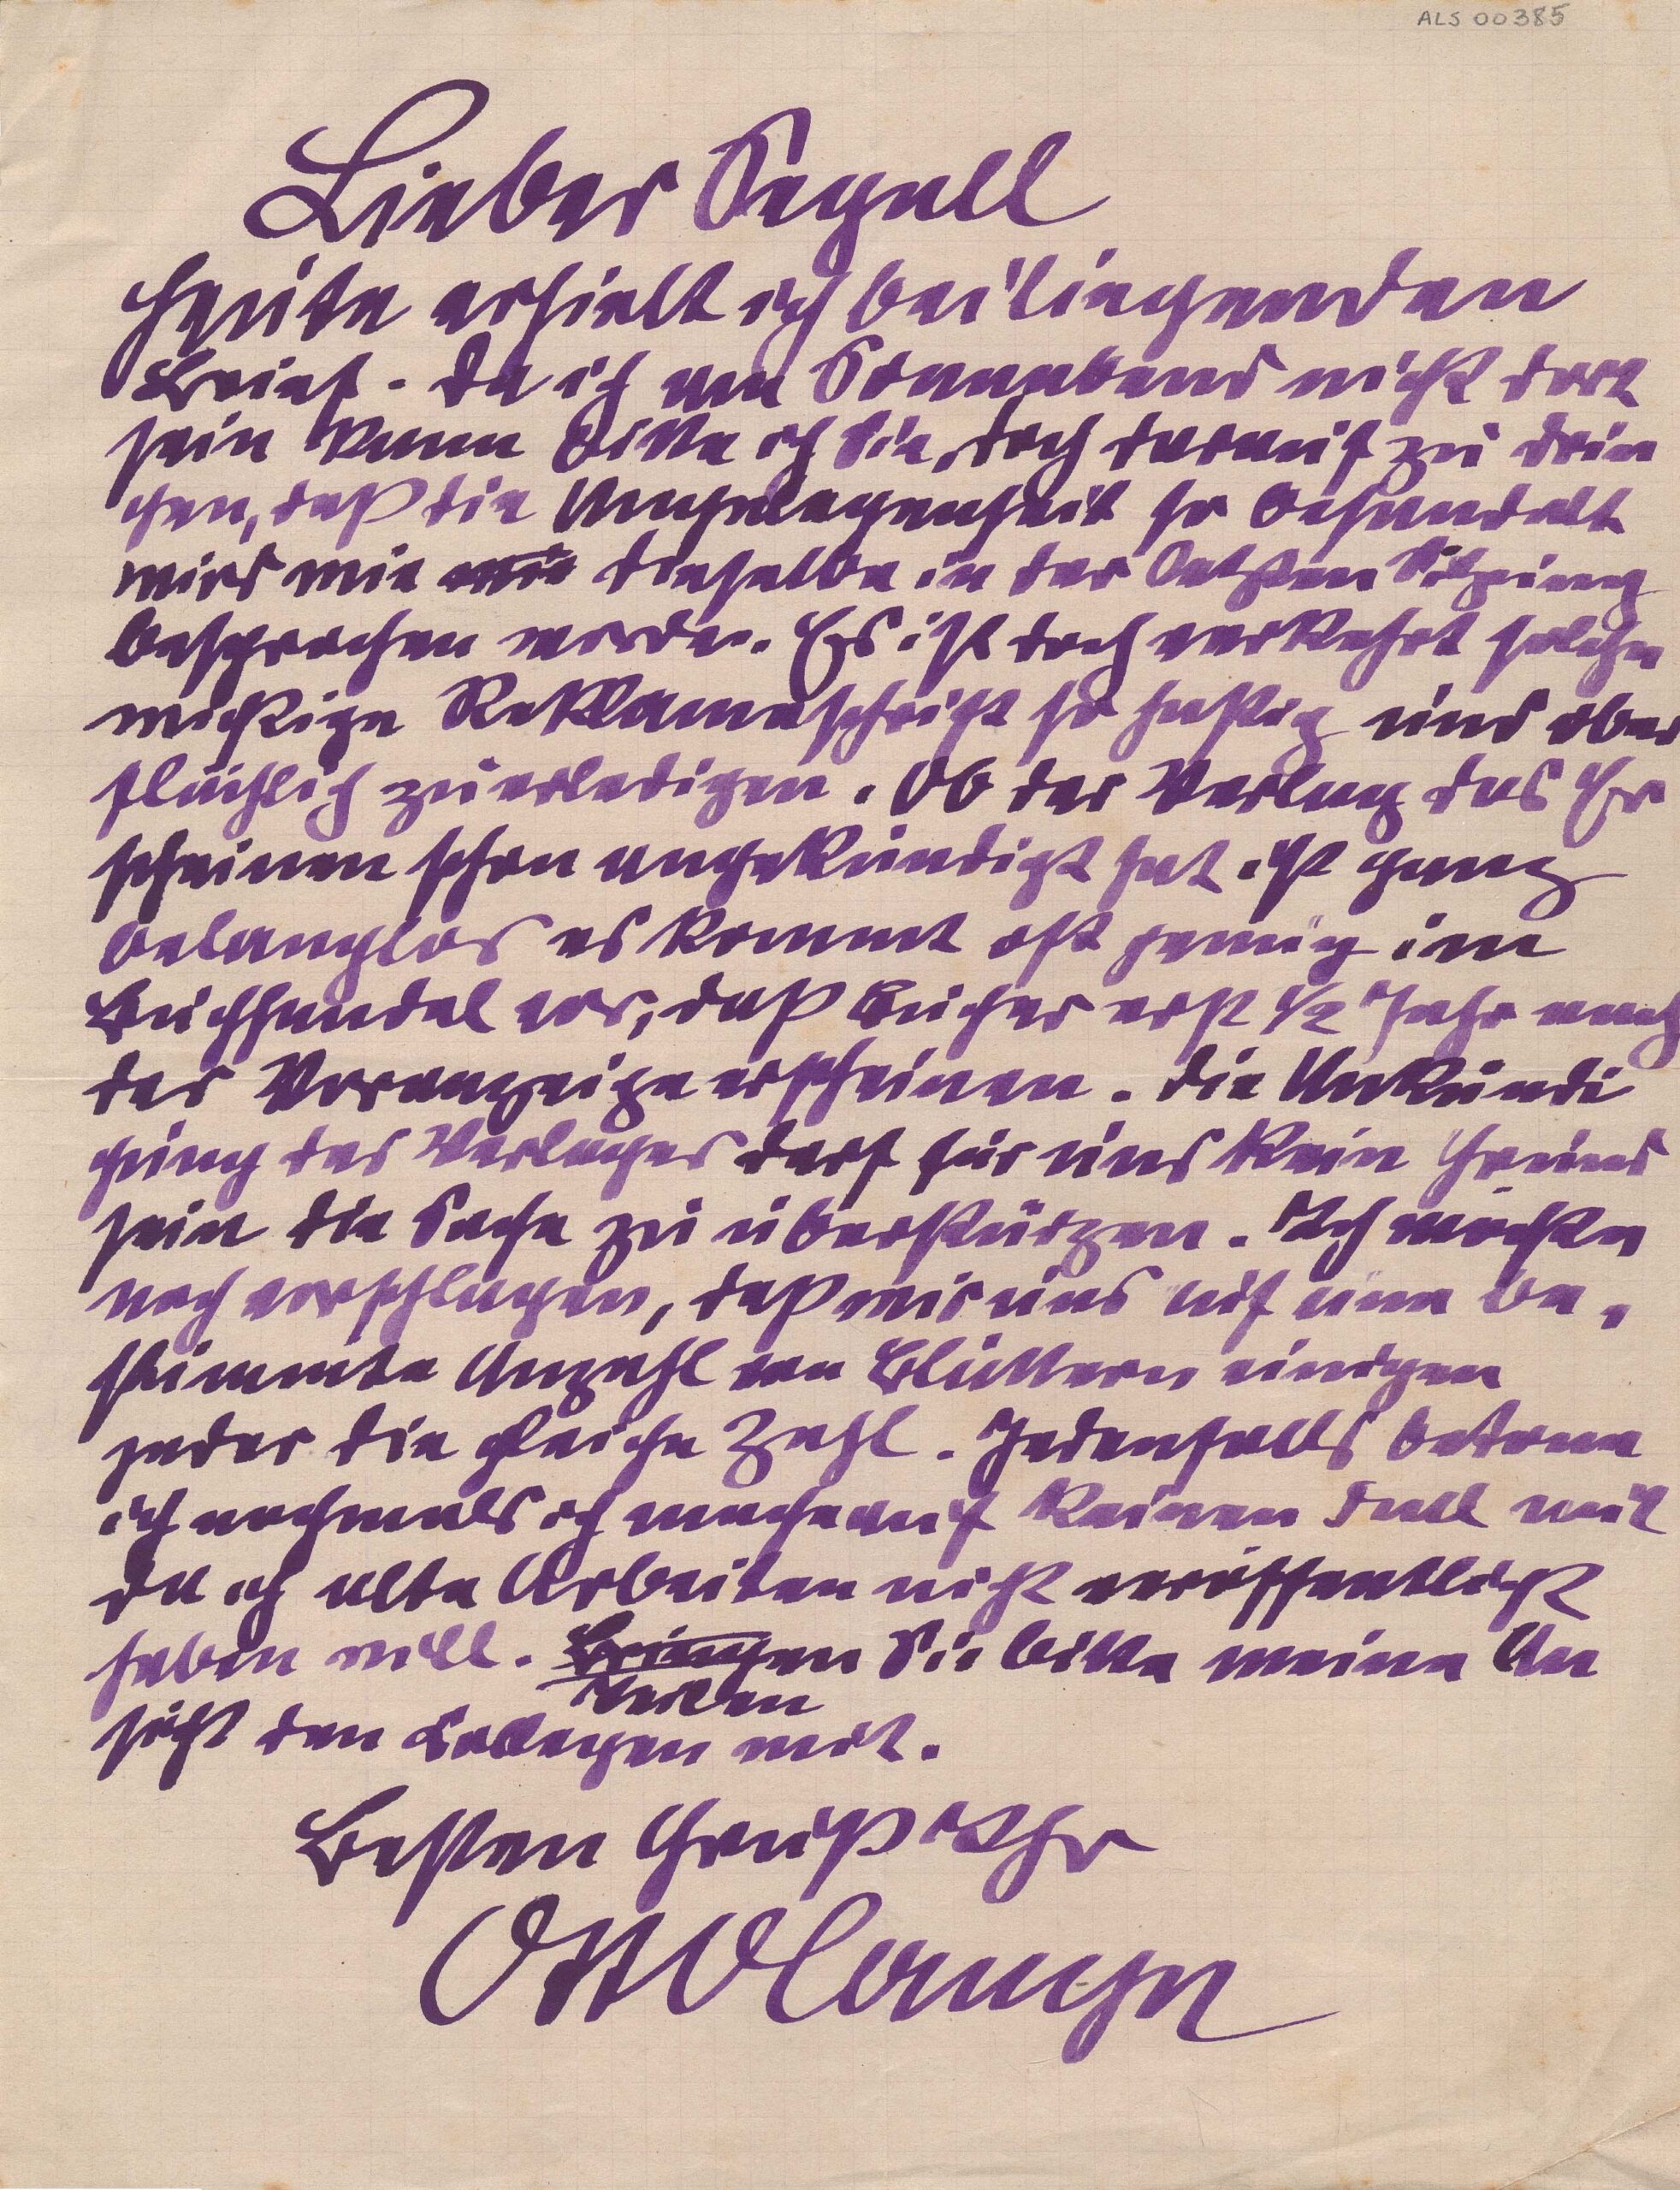 ALS 00385
Lieber Segall
heute erhielt ich beiliegenden
Brief. Da ich am Sonnabend nicht dort
sein kann bitte ich Sie, doch darauf zu drin
gen, daß die Angelegenheit so behandelt
wird wie dieselbe in der letzten Sitzung
besprochen wurde. Es ist doch verkehrt solche
wichtige Reklameschrift so hastig und ober
flächlich zu erledigen. Ob der Verlag das Er
scheinen schon angekündigt hat ist ganz
belanglos es kommt oft genug im
Buchhandel vor, daß Bücher erst 1/2 Jahr nach
der Voranzeige erscheinen. Die Ankündi
gung des Verlages darf für uns kein Grund
sein die Sache zu überstürzen. Ich möchte
noch vorschlagen, daß wir uns auf eine be-
stimmte Anzahl von Blättern einigen
jeder die gleiche Zahl. Jedenfalls betone
ich nochmals ich mache auf keinen Fall mit
da ich alte Arbeiten nicht veröffentlicht
haben will. Bringen Sie bitte meine An
Teilen
sicht den Kollegen mit.
Besten Gruß Ihr
Otto Lange